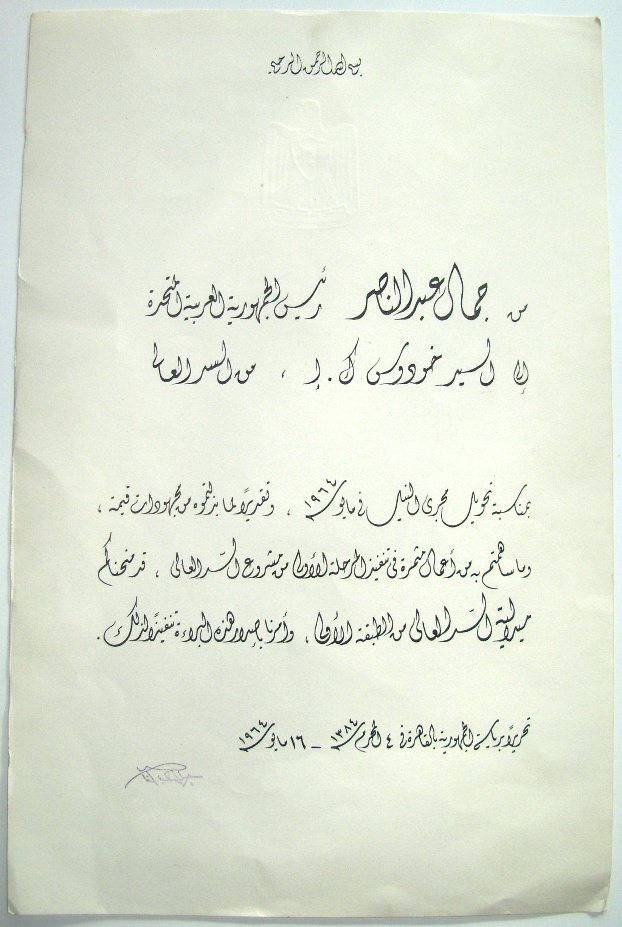 بسم الله الرحمن الرحيم
من جمال عبد الناصر رئيس الجمهورية العربية المتحدة
إلى السيد خمودوس ك . إ ، من السد العالى
بمناسبة تحويل مجرى النيل فى مايو ١٩٦٤ ، وتقديرًا لما بذلتموه من مجهودات قيمة ،
وما ساهمتم به من أعمال مثمرة فى تنفيذ المرحلة الأولى من مشروع السد العالى ، قد منحناكم
ميدالية السد العالى من الطبقة الأولى ، وأمرنا بإصدار هذه البراءة تنفيذًا لذلك .
تحريرًا برياسة الجمهورية بالقاهرة فى ٤ المحرم ١٣٨٤ – ١٦ مايو ١٩٦٤